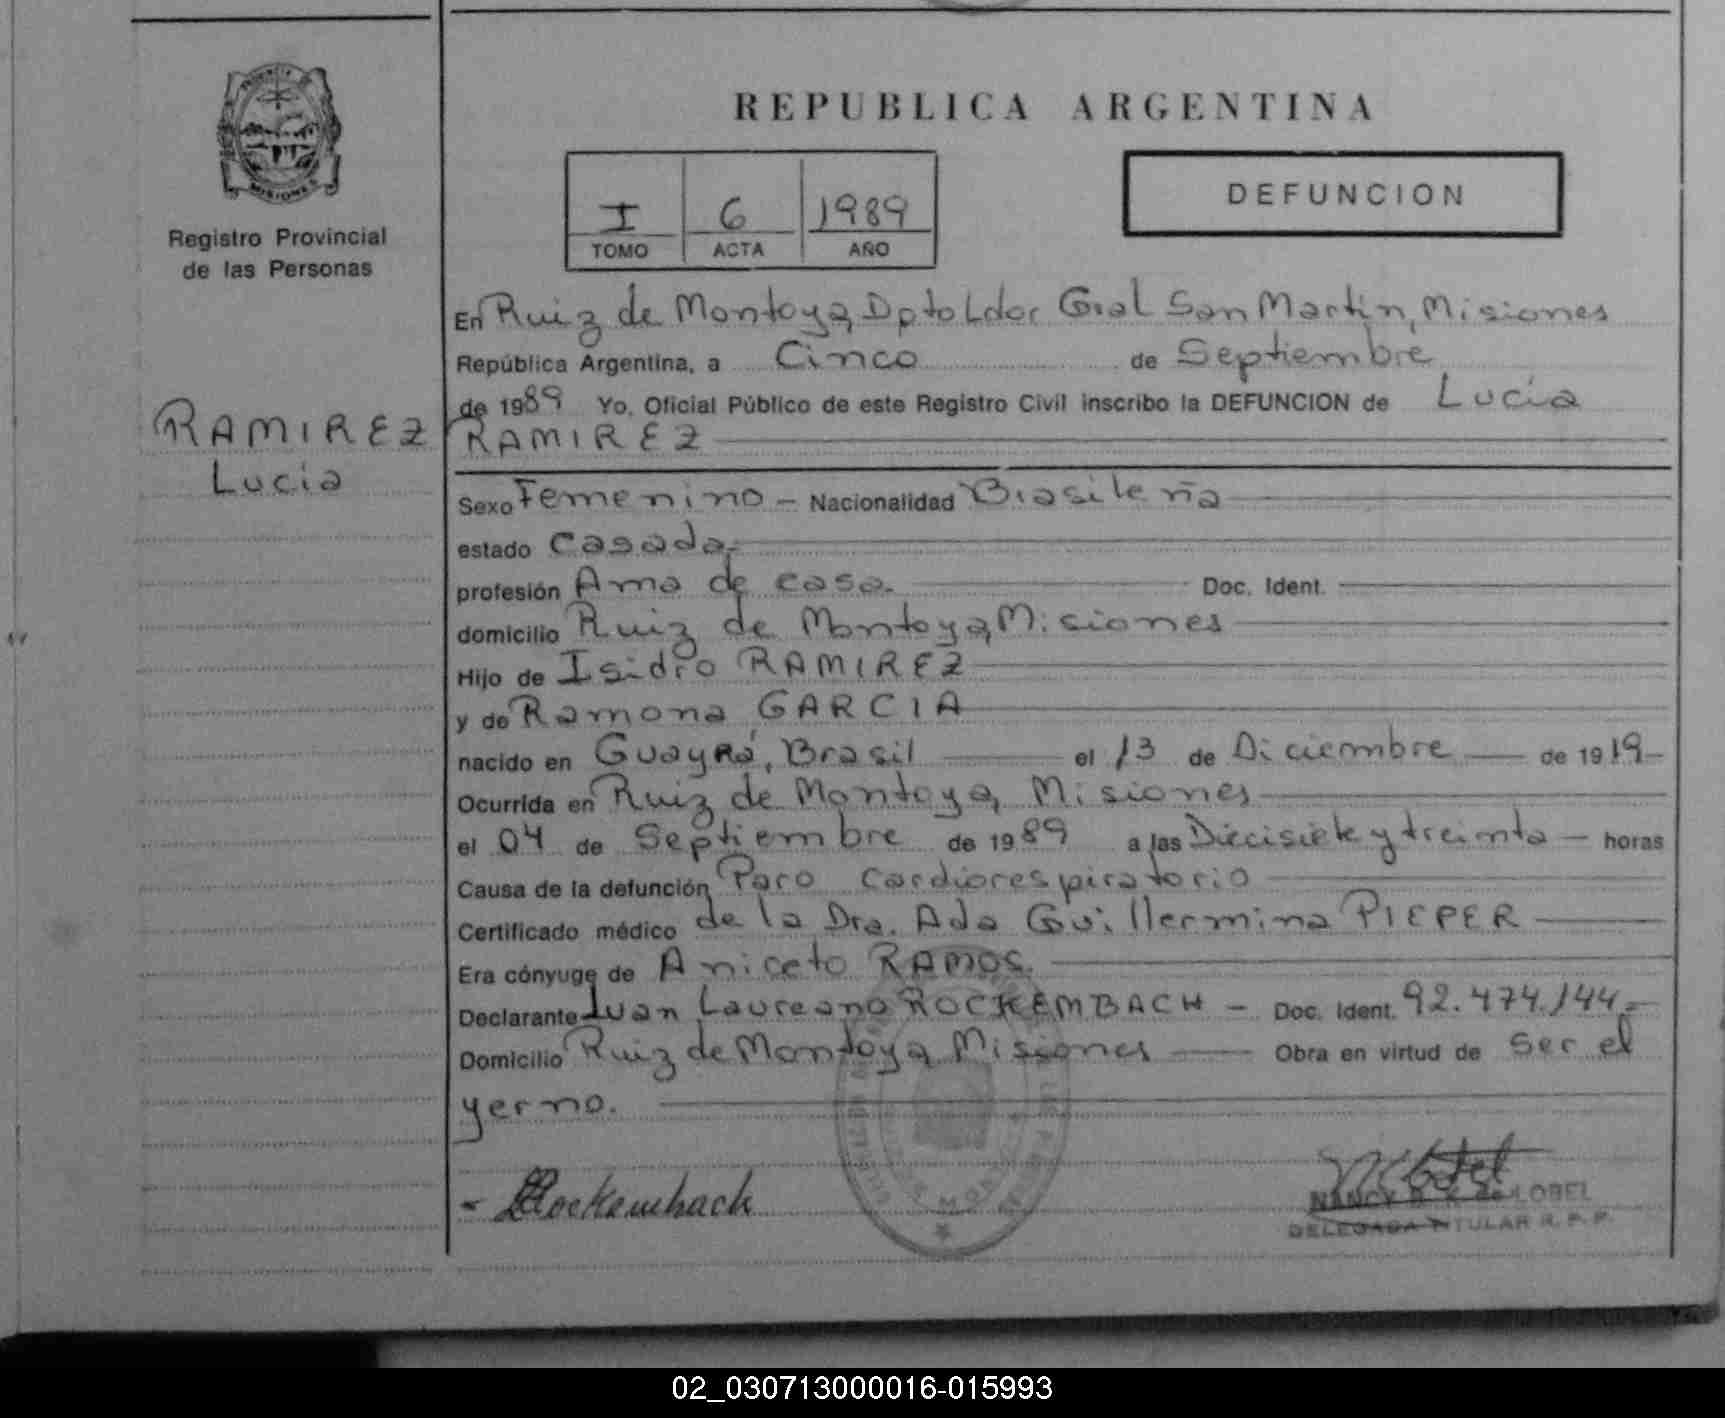 PROVINCIA DE
MISIONES
Registro Provincial
de las Personas
RAMIREZ
Lucia
REPUBLICA ARGENTINA
I 6 1989
TOMO ACTA AÑO
DEFUNCION
En Ruiz de Montoya, Dpto Ldor Gral San Martín, Misiones
República Argentina, a Cinco de Septiembre
de 1989 Yo, Oficial Público de este Registro Civil inscribo la DEFUNCION de Lucía
RAMIREZ
Sexo Femenino - Nacionalidad Brasileña
estado Casada.-
profesión Ama de casa. Doc. Ident.
domicilio Ruiz de Montoya, Misiones
Hijo de Isidro RAMIREZ
y de Ramona GARCIA
nacido en Guayrá, Brasil el 13 de Diciembre de 1919-
Ocurrida en Ruiz de Montoya, Misiones
el 04 de Septiembre de 1989 a las Diecisiete y treinta - horas
Causa de la defunción Paro cardiorespiratorio
Certificado médico de la Dra. Ada Guillermina PIEPER
Era cónyuge de Aniceto RAMOS.
Declarante Juan Laureano ROCKEMBACH - Doc. Ident. 92.474.144.-
Domicilio Ruiz de Montoya, Misiones Obra en virtud de ser el
yerno.
- Rockembach
NANCY de LOBEL
DELEGADA TITULAR R. P. P.
02_030713000016-015993